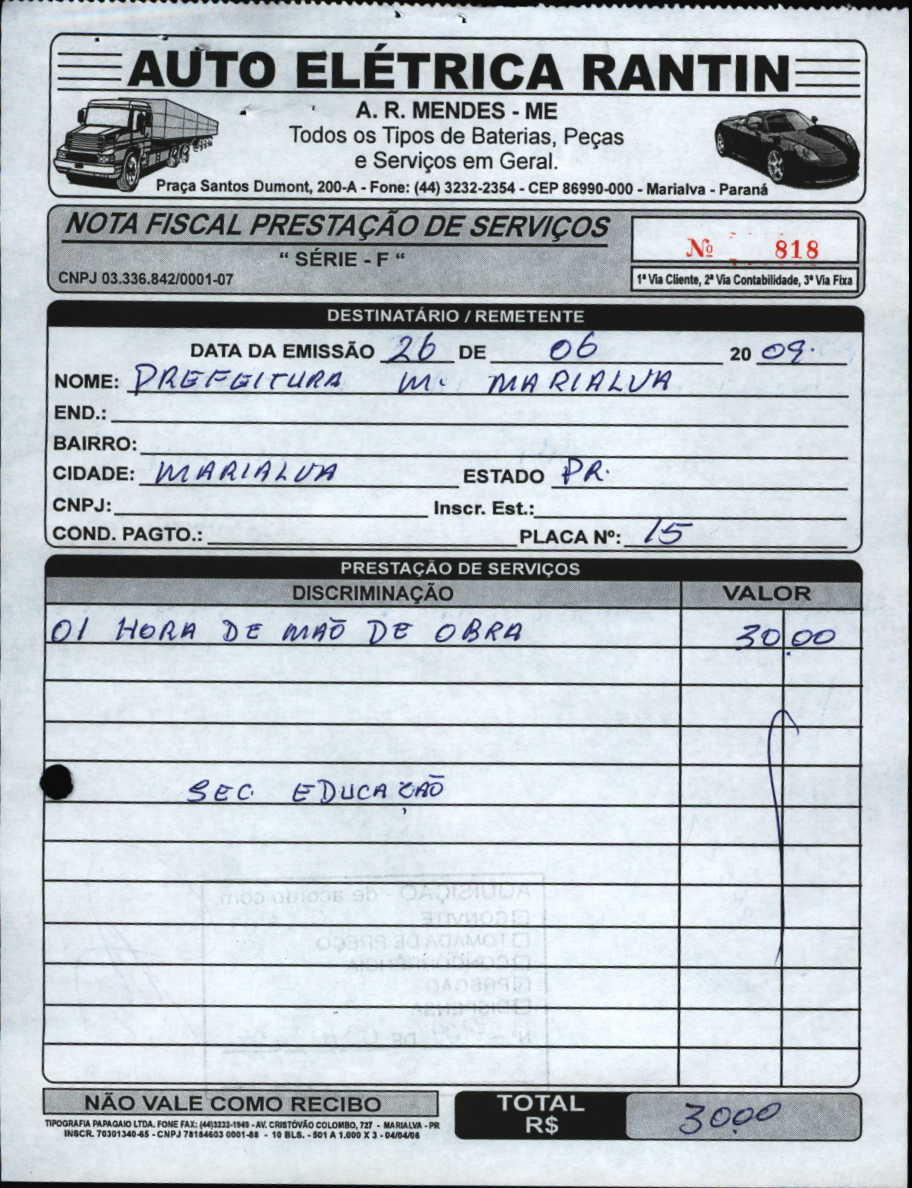 AUTO ELÉTRICA RANTIN
A. R. MENDES - ME
Todos os Tipos de Baterias, Peças
e Serviços em Geral.
Praça Santos Dumont, 200-A - Fone: (44) 3232-2354 - CEP 86990-000 - Marialva - Paraná
NOTA FISCAL PRESTAÇÃO DE SERVIÇOS
" SÉRIE - F "
Nº 818
CNPJ 03.336.842/0001-07
1ª Via Cliente, 2ª Via Contabilidade, 3ª Via Fixa
DESTINATÁRIO / REMETENTE
DATA DA EMISSÃO 26 DE 06 20 09.
NOME: PREFEITURA M. MARIALVA
END.:
BAIRRO:
CIDADE: MARIALVA ESTADO PR.
CNPJ: Inscr. Est.:
COND. PAGTO.: PLACA Nº: 15
PRESTAÇÃO DE SERVIÇOS
DISCRIMINAÇÃO VALOR
01 HORA DE MÃO DE OBRA 30,00
SEC. EDUCAÇÃO
AQUISIÇÃO - de acordo com.
CONVITE
TOMADA DE PREÇO
CONCORRÊNCIA
PREGÃO
DISPENSA
NÃO VALE COMO RECIBO
TOTAL
R$ 3000
TIPOGRAFIA PAPAGAIO LTDA. FONE FAX: (44)3232-1949 - AV. CRISTÓVÃO COLOMBO, 727 - MARIALVA - PR
INSCR. 70301340-65 - CNPJ 78184603 0001-68 - 10 BLS. - 501 A 1.000 X 3 - 04/04/06